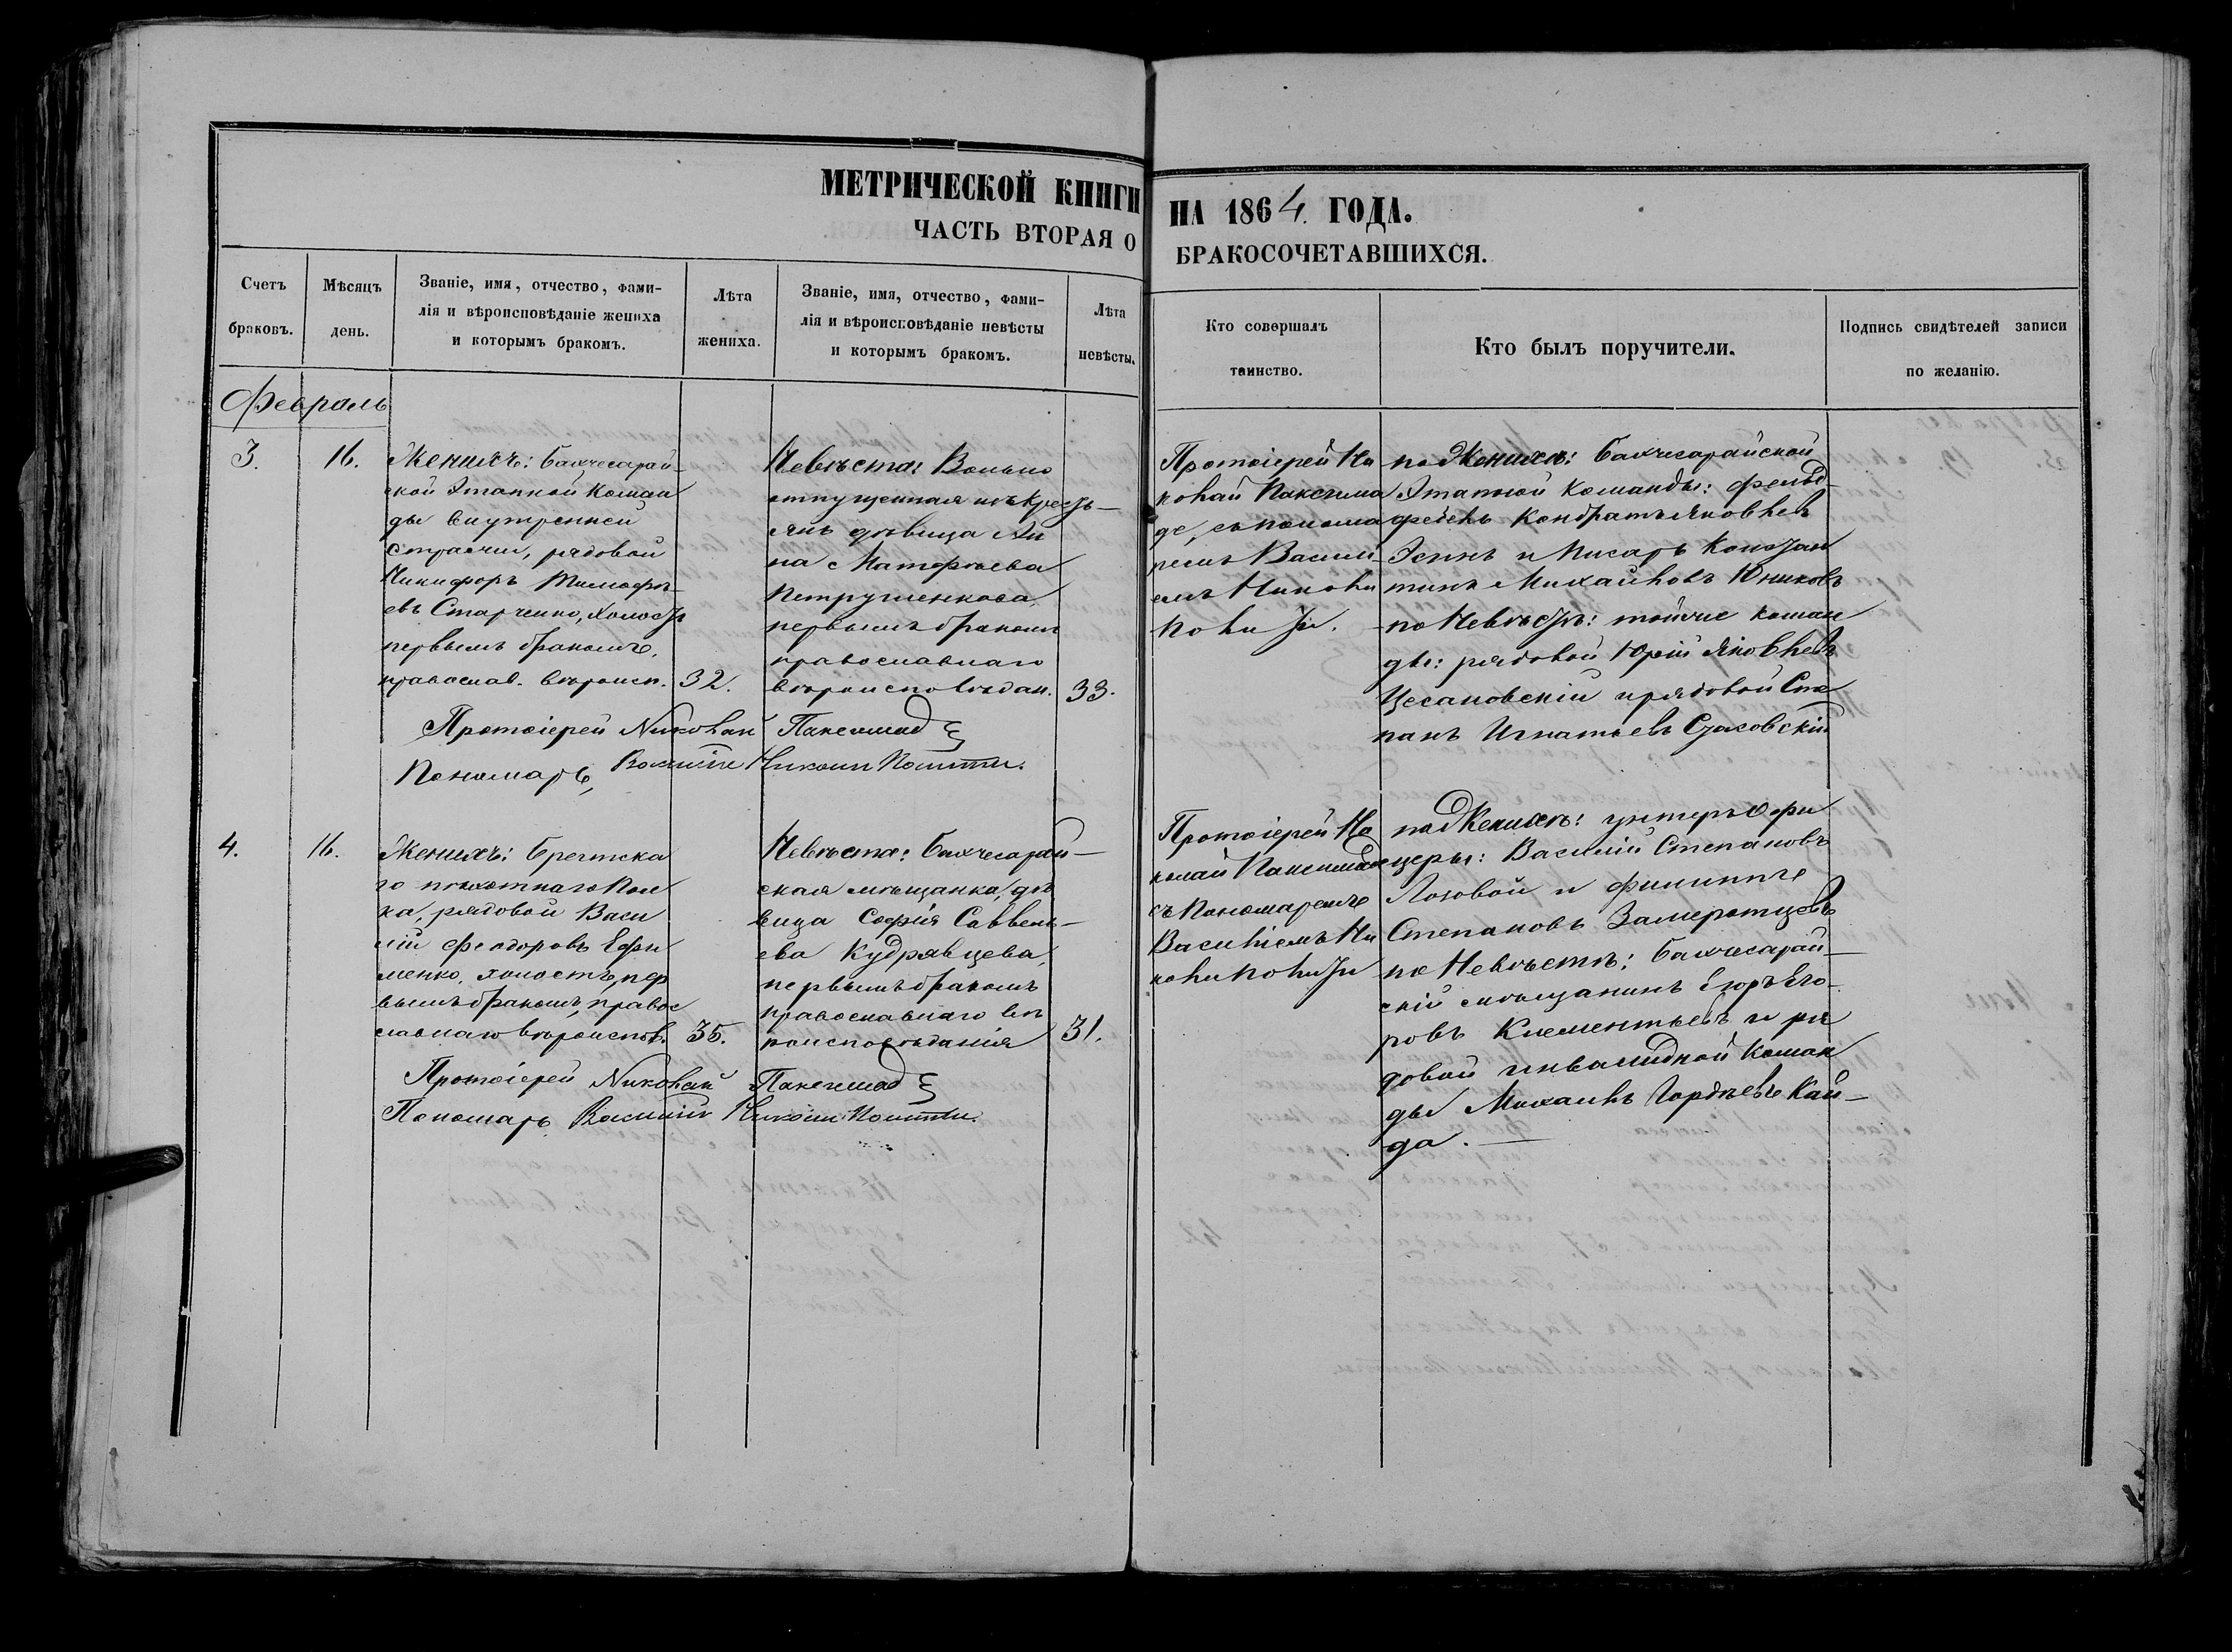 МЕТРИЧЕСКОЙ КНИГИ НА 1864. ГОДА.
ЧАСТЬ ВТОРАЯ О БРАКОСОЧЕТАВШИХСЯ.
Счетъ
браковъ.
Мѣсяцъ
день.
Званіе, имя, отчество, фами-
лія и вѣроисповѣданіе жениха
и которымъ бракомъ.
Лѣта
жениха.
Званіе, имя, отчество, фами-
лія и вѣроисповѣданіе невѣсты
и которымъ бракомъ.
Лѣта
невѣсты.
Кто совершалъ
таинство.
Кто былъ поручители.
Подпись свидѣтелей записи
по желанію.
Февраль
3.
16.
Женихъ: Бахчесарай-
ской Этапной Коман
ды внутренней
стражи, рядовой
Никифоръ Тимофѣ-
евъ Старченко, холостъ
первымъ бракомъ,
православ. вѣроисп.
32.
Невѣста: Вольно
отпущенная изъ Кресть-
янъ дѣвица Ан
на Матфѣева
Петрушенкова,
первымъ бракомъ
православнаго
вѣроисповѣдан.
33.
Протоіерей Николай
Пономарь, Василій
Протоіерей Ни
колай
съ понома
ремъ Василі-
емъ
по Женихѣ: Бахчесарайской
Этапной Команды: фельд-
фебель Кондратъ Яковлев
и Писарь Констан
тинъ Михайловъ Юниковъ
по Невѣстѣ: тойже коман
ды: рядовой Юрій Яковлевъ
Цесановскій и рядовой Сте
панъ Игнатьевъ
4.
16.
Женихъ: Брестска
го пѣхотнаго Пол
ка, рядовой Васи
лій Феодоровъ Ефи
менко, холостъ, пер
вымъ бракомъ, право
славнаго вѣроиспов.
35.
Невѣста: Бахчесарай-
ская мѣщанка, дѣ
вица Софія Саввель-
ева Кудрявцева,
первымъ бракомъ
православнаго вѣ
роисповѣданія
31.
Протоіерей Николай
Пономарь Василій
Протоіерей Ни
колай
съ Пономаремъ
Василіемъ
по Женихѣ: унтеръ Офи
церы: Василій Степановъ
Лозовой и Филиппъ
Степановъ
по Невѣстѣ: Бахчесарай-
скій мѣщанинъ Егоръ Его-
ровъ Клементьевъ и ря
довой инвалидной Коман
ды Михаилъ Гордѣевъ Кай-
да.